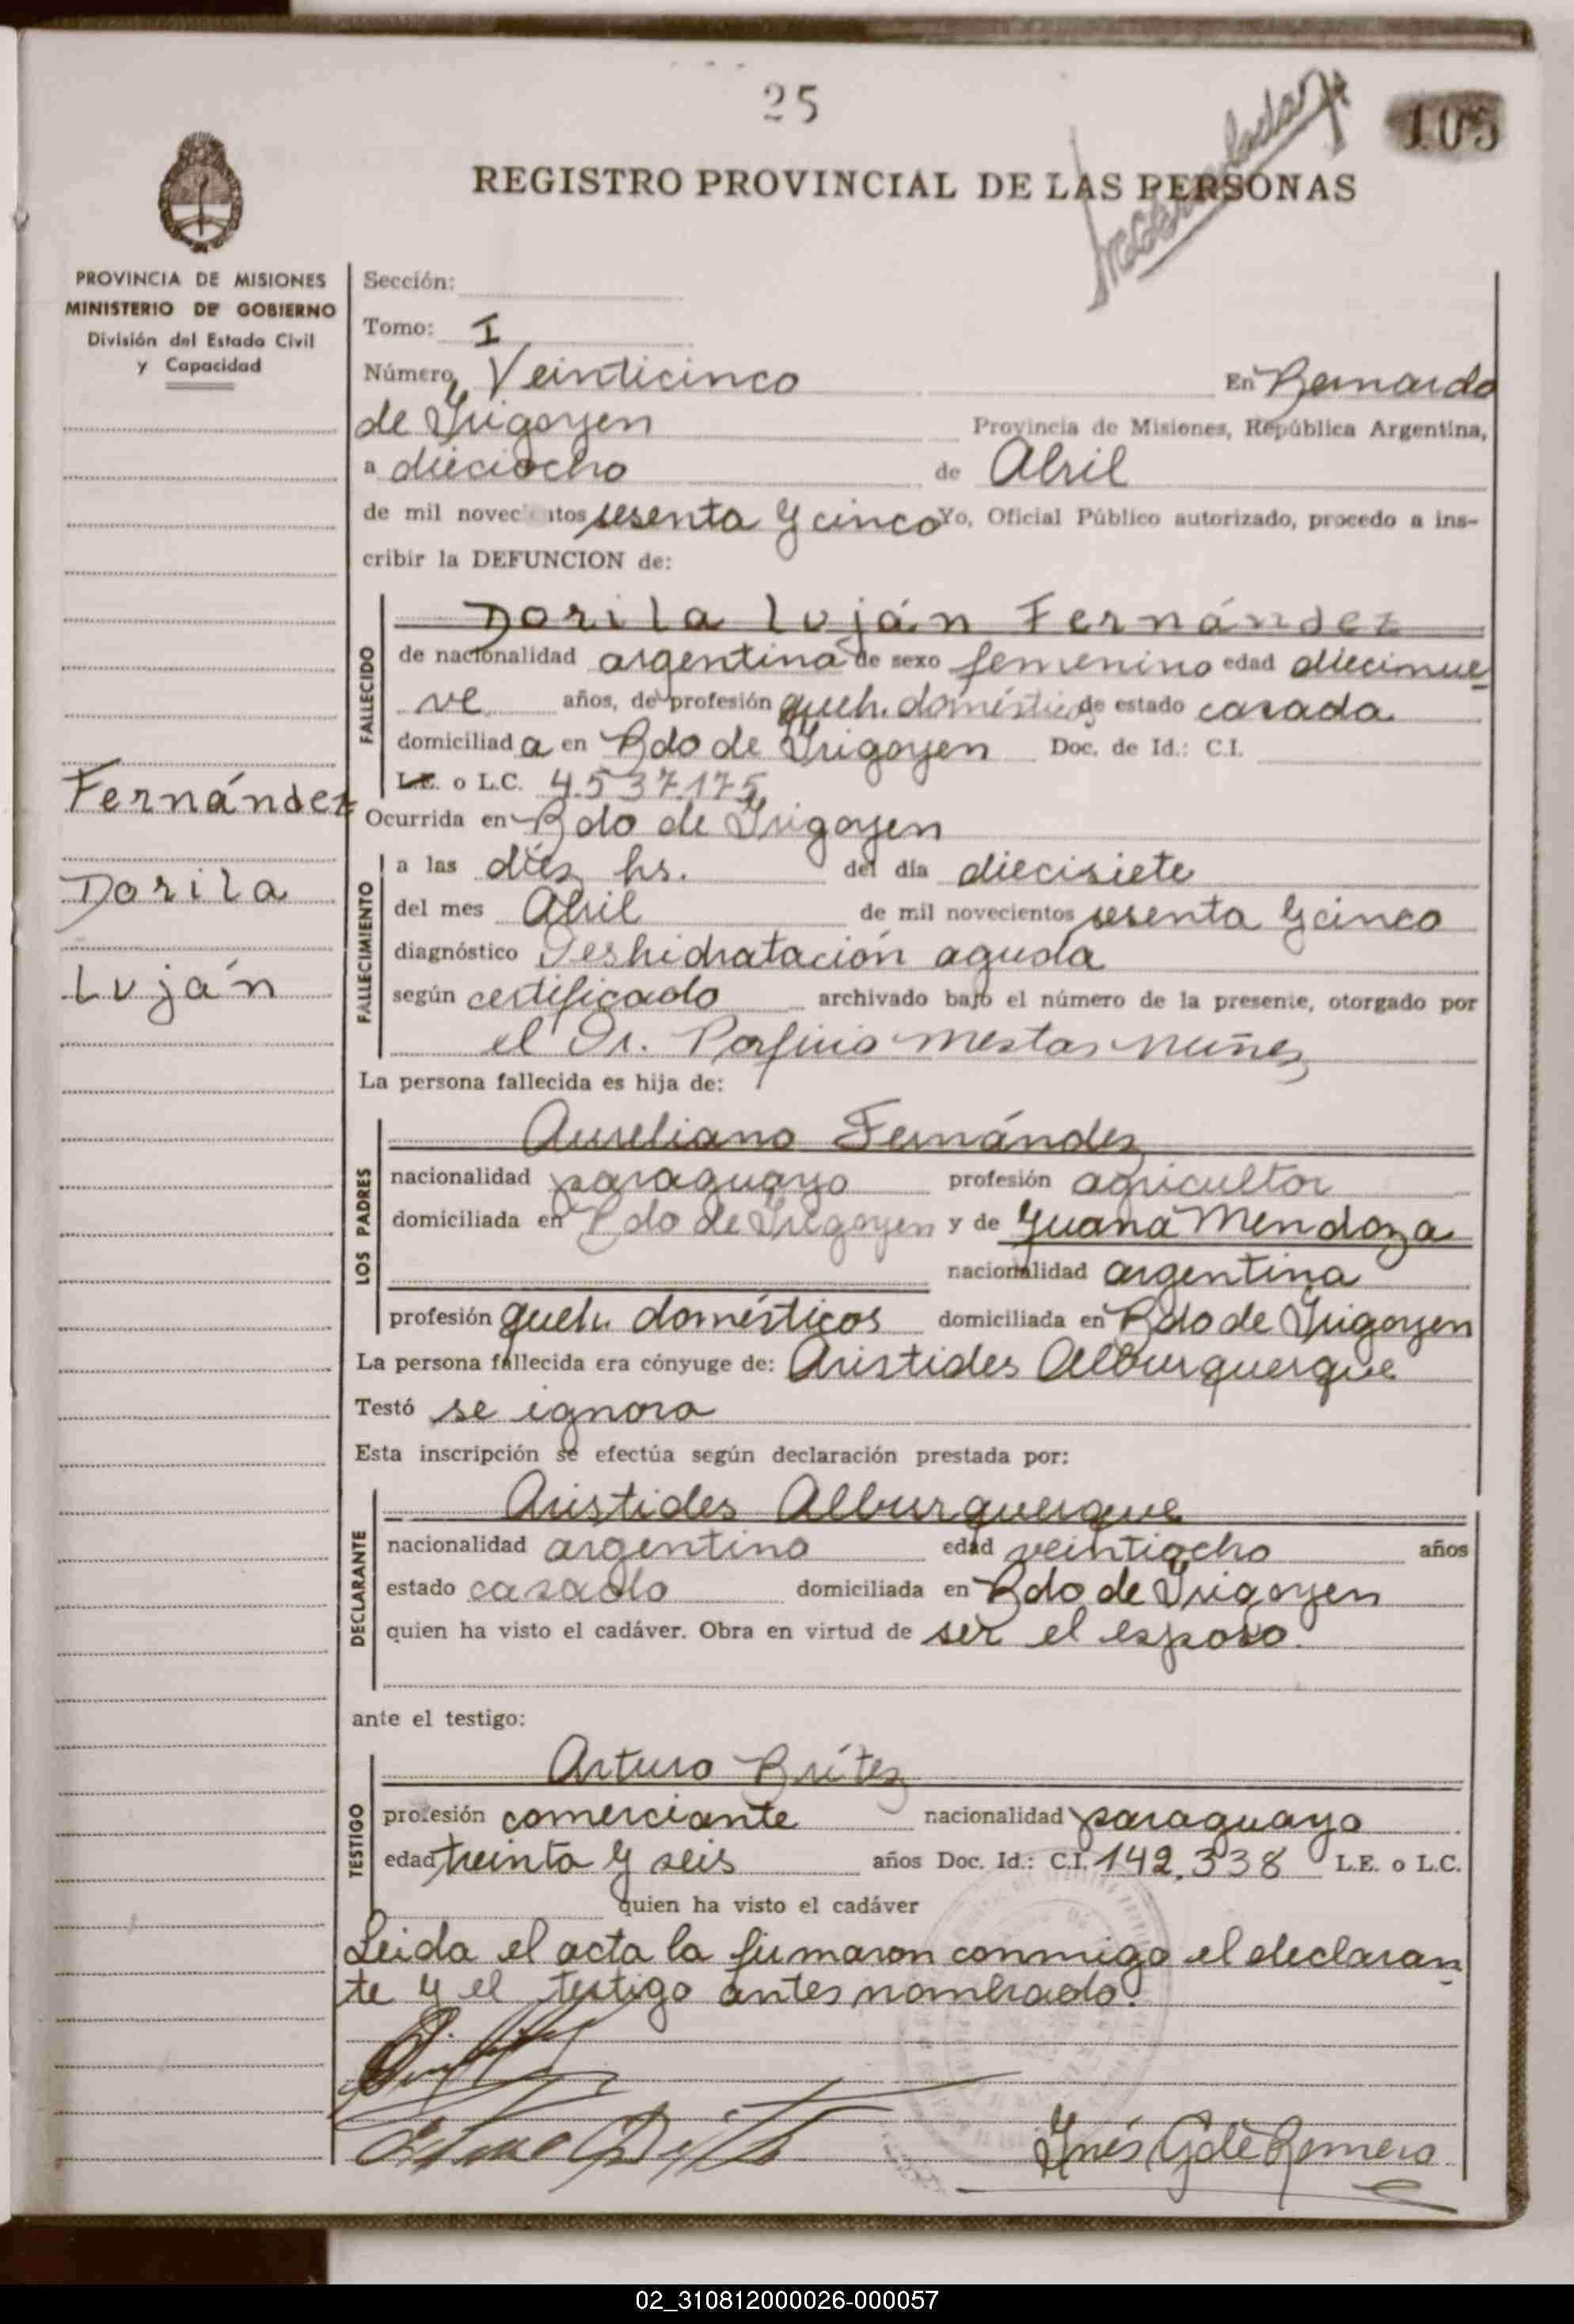 25
105
REGISTRO PROVINCIAL DE LAS PERSONAS
PROVINCIA DE MISIONES
MINISTERIO DE GOBIERNO
División del Estado Civil
y Capacidad
Fernández
Dorila
Luján
Sección:
Tomo: I
Número Veinticinco En Bernardo
de Irigoyen Provincia de Misiones, República Argentina,
a dieciocho de Abril
de mil novecientos sesenta y cinco Yo, Oficial Público autorizado, procedo a ins-
cribir la DEFUNCION de:
FALLECIDO
Dorila Luján Fernández
de nacionalidad argentina de sexo femenino edad diecinue
ve años, de profesión queh. domésticos de estado casada
domiciliada en Bdo de Irigoyen Doc. de Id.: C.I.
L.E. o L.C. 4.537.175
Ocurrida en Bdo de Irigoyen
FALLECIMIENTO
a las diez hs. del día diecisiete
del mes Abril de mil novecientos sesenta y cinco
diagnóstico Deshidratación aguda
según certificado archivado bajo el número de la presente, otorgado por
el Dr. Porfirio Mestas Nuñez
La persona fallecida es hija de:
LOS PADRES
Aureliano Fernández
nacionalidad paraguayo profesión agricultor
domiciliada en Bdo de Irigoyen y de Juana Mendoza
nacionalidad argentina
profesión queh. domésticos domiciliada en Bdo de Irigoyen
La persona fallecida era cónyuge de: Aristides Alburquerque
Testó se ignora
Esta inscripción se efectúa según declaración prestada por:
DECLARANTE
Aristides Alburquerque
nacionalidad argentino edad veintiocho años
estado casado domiciliada en Bdo de Irigoyen
quien ha visto el cadáver. Obra en virtud de ser el esposo.
ante el testigo:
TESTIGO
Arturo Brítez
profesión comerciante nacionalidad paraguayo
edad treinta y seis años Doc. Id.: C.I. 142.338 L.E. o L.C.
quien ha visto el cadáver
Leida el acta la firmaron conmigo el declaran
te y el testigo antes nombrado.
Inés G de Romero
02_310812000026-000057